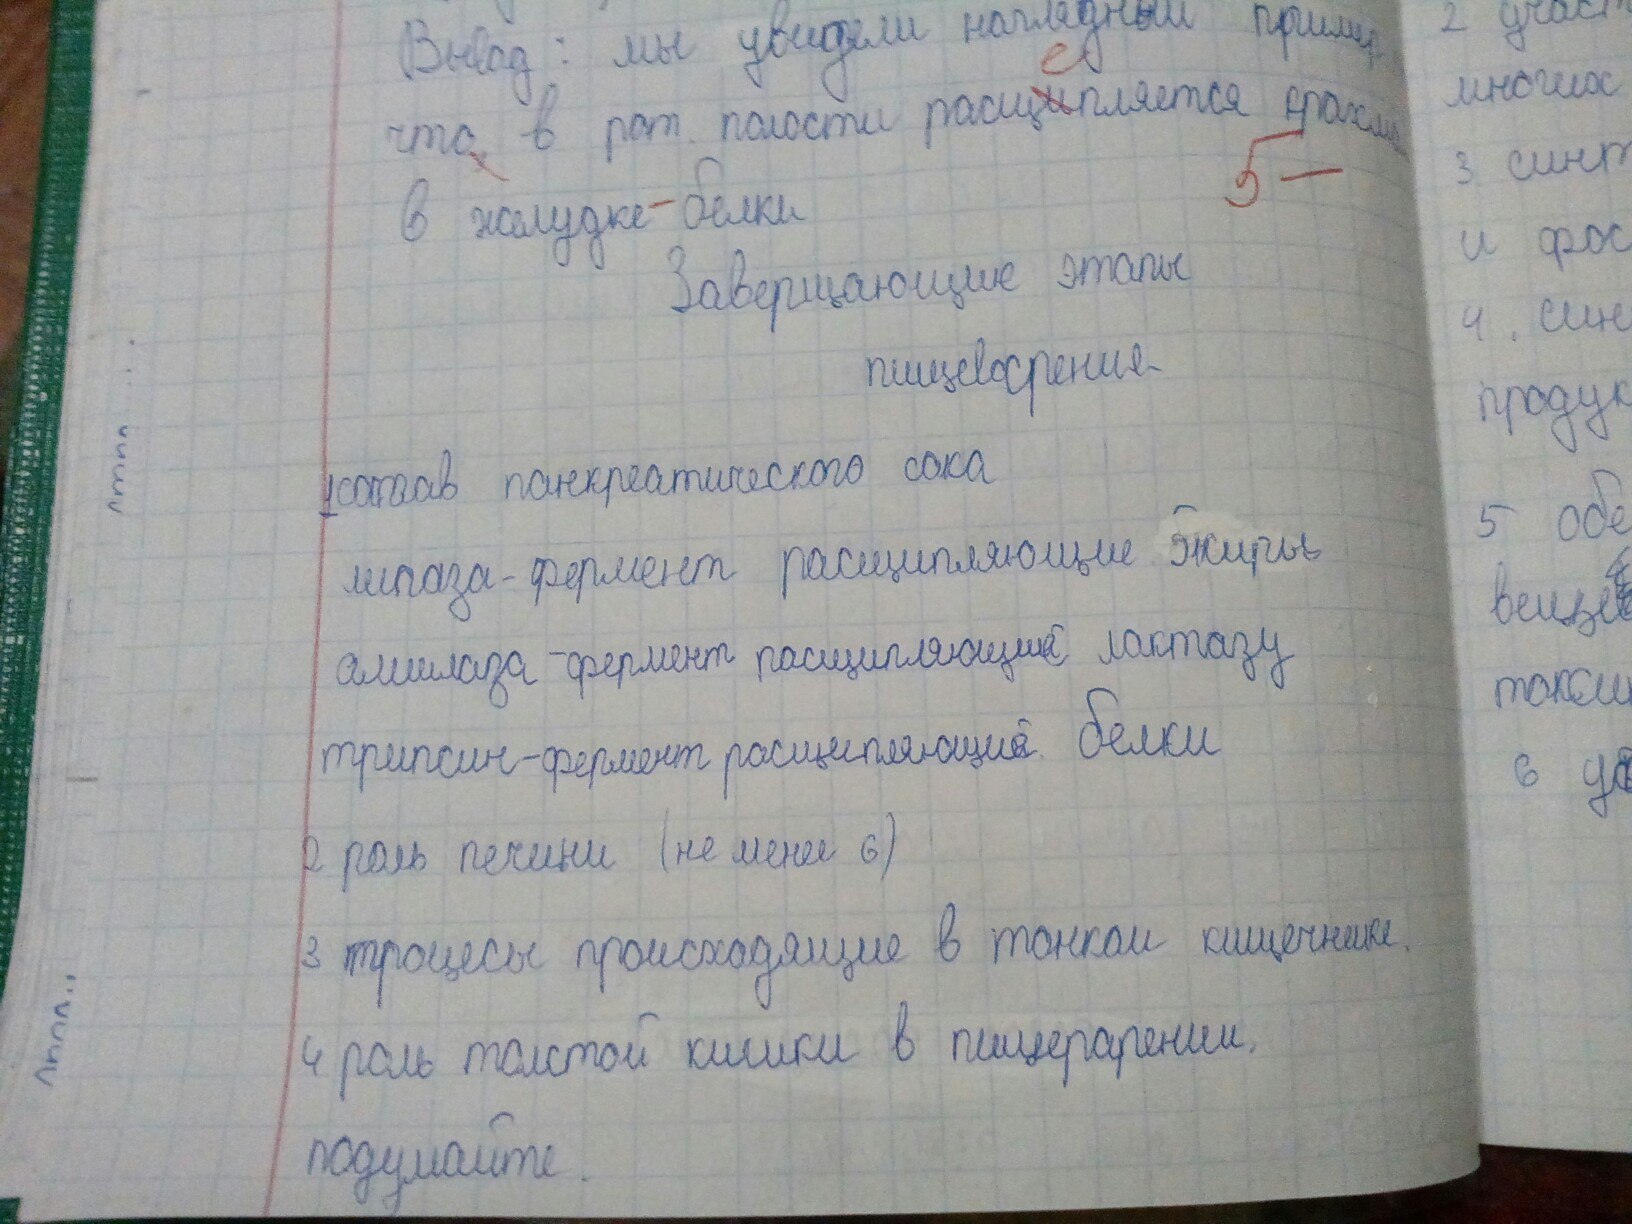 Вывод: мы увидели наглядный пример
что в рот. полости расщепляется крахмал
в желудке - белки
5-
Заверщающие этапы
пищеворения
1 состав панкреатического сока
липаза - фермент расщипляющие жиры
амилаза - фермент расщипляющий лактазу
трипсин - фермент расщипляющий белки
2 роль печини (не менее 6)
3 процесы происходящие в тонком кищечнике.
4 роль толстой кишки в пищерарении.
подумайте.
2 участ
многих
3 синт
и фос
4. син
продук
5 обе
вещес
токси
6